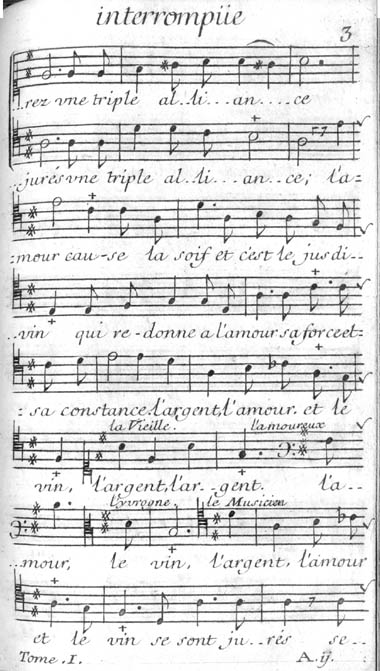 interrompüe
3
..rez vne triple al..li...an....ce
..jurés vne triple al..li...an..ce; l'a-
:mour cau-se la soif et c'est le jus di--
..vin qui re-donne a l'amour sa force et-
:sa constance, l'argent, l'amour. et le
la Vieille. l'amoureux
vin, l'argent, l'ar..gent. l'a..
l'yvrogne. le Musicien
..mour, le vin, l'argent, l'amour
et le vin se sont ju..rés se...
Tome .I. A.ij.